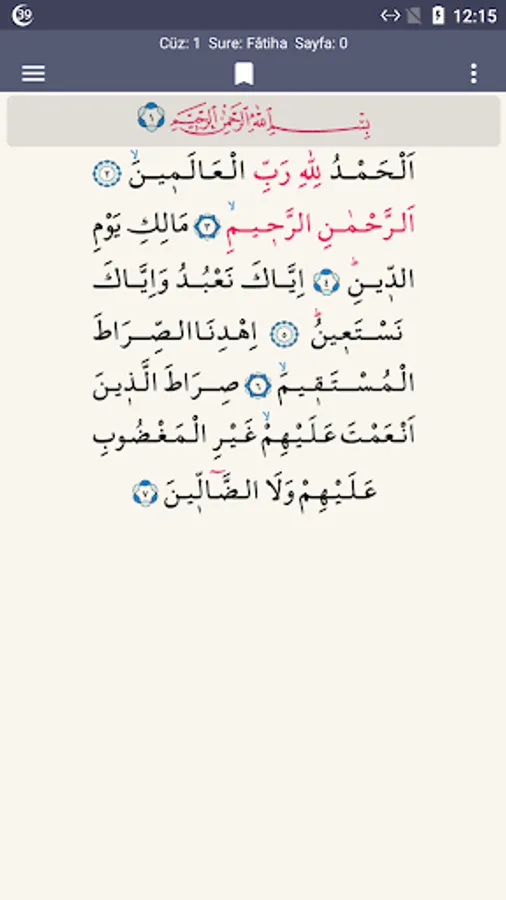 39 12:15
Cüz: 1 Sure: Fâtiha Sayfa: 0
بِسْمِ اللّٰهِ الرَّحْمٰنِ الرَّحِيمِ ١
اَلْحَمْدُ لِلّٰهِ رَبِّ الْعَالَمِينَۙ ٢
اَلرَّحْمٰنِ الرَّحِيمِۙ ٣ مَالِكِ يَوْمِ
الدِّينِۜ ٤ اِيَّاكَ نَعْبُدُ وَاِيَّاكَ
نَسْتَعِينُۜ ٥ اِهْدِنَا الصِّرَاطَ
الْمُسْتَقِيمَۙ ٦ صِرَاطَ الَّذِينَ
اَنْعَمْتَ عَلَيْهِمْۙ غَيْرِ الْمَغْضُوبِ
عَلَيْهِمْ وَلَا الضَّٓالِّينَ ٧